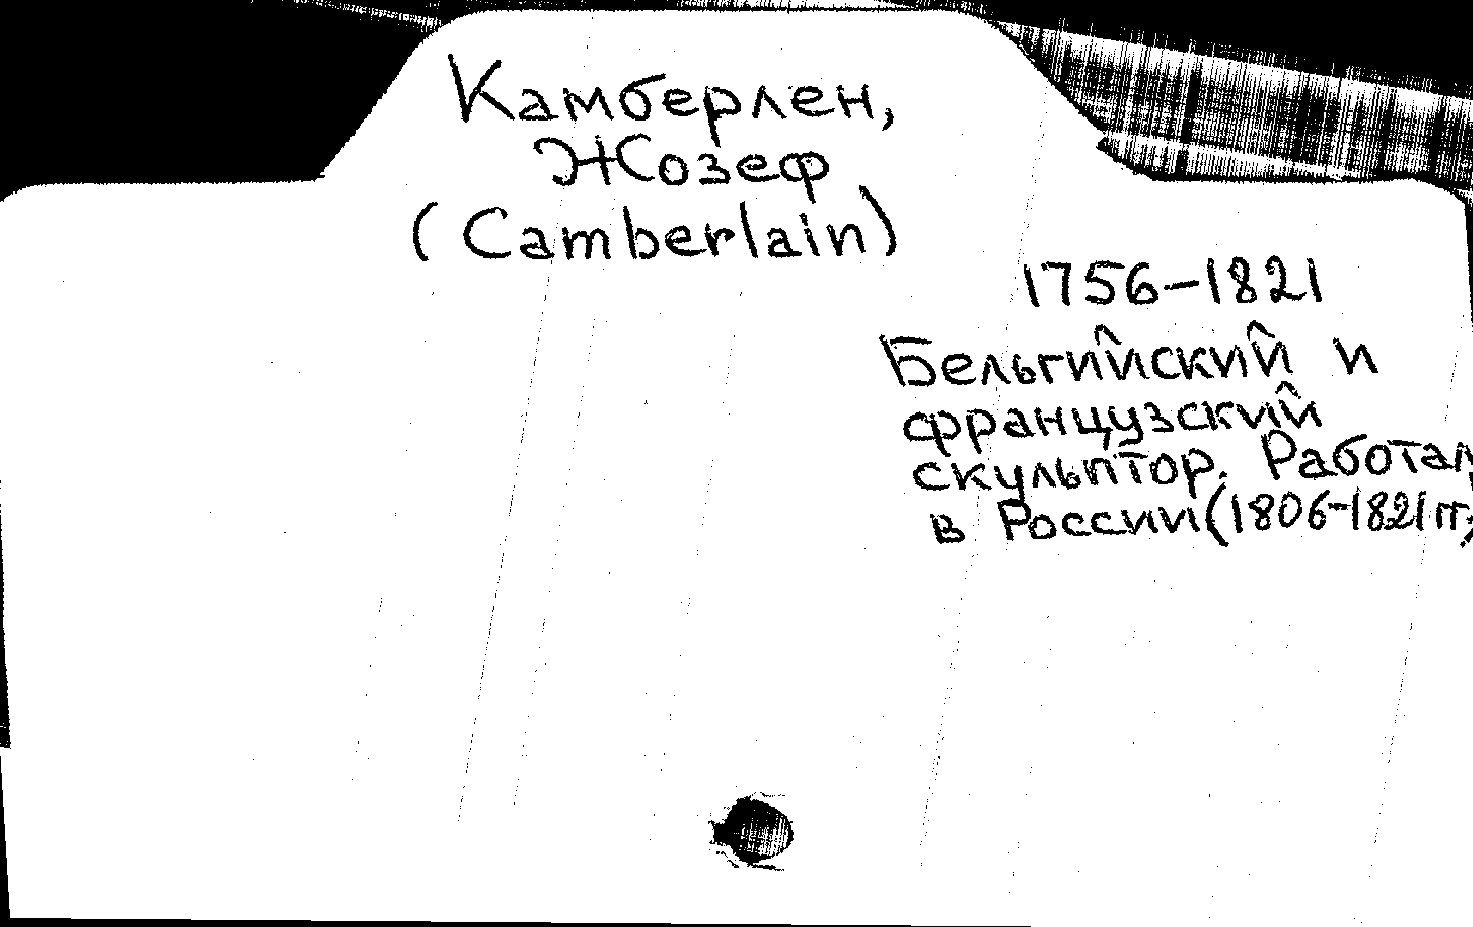 Камберлен,
Жозеф
(Camberlain)
1756-1821
Бельгийский и
французский
скульптор. Работал
в России (1806-1821 гг.)